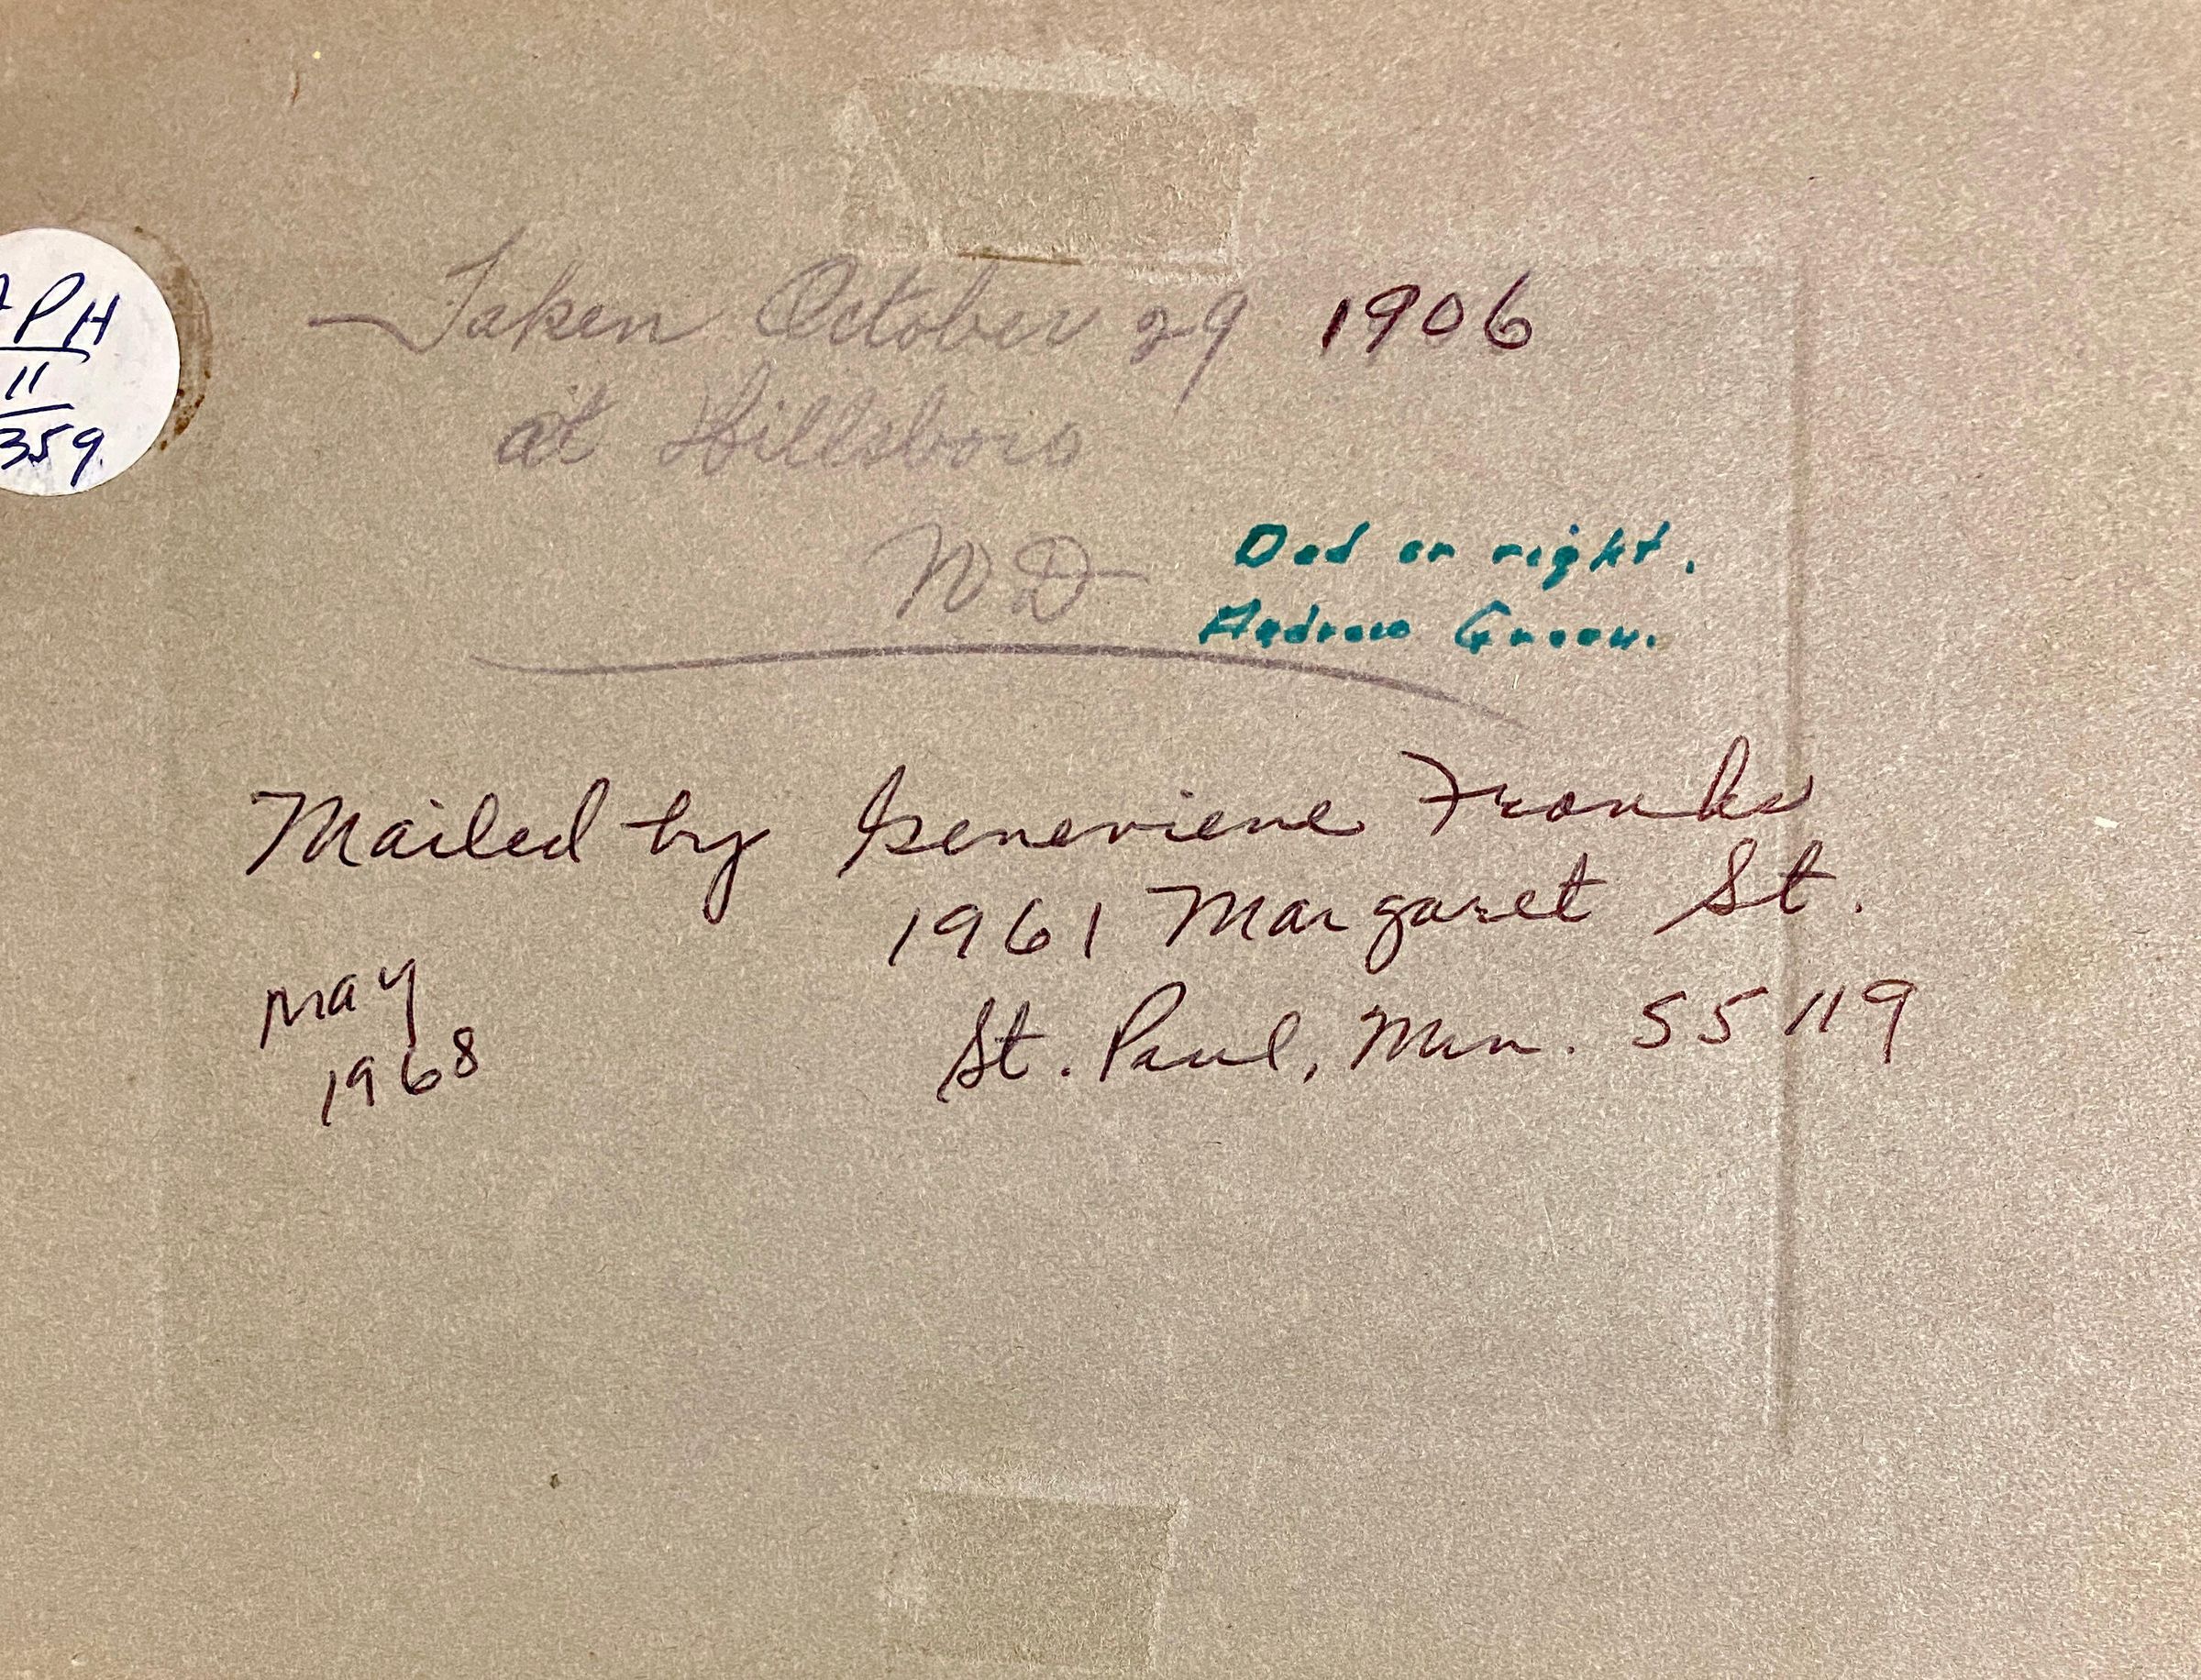 PH
11
359
Taken October 29 1906
at Hillsboro
N D
Dad on right.
Andrew Green.
Mailed by Genevieve Franks
1961 Margaret St.
St. Paul, Minn. 55119
May
1968